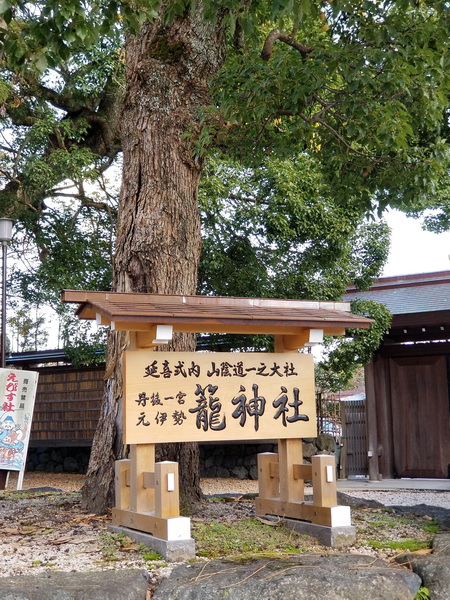 延喜式内 山陰道一之大社
丹後一宮
元伊勢
籠神社
えびす社